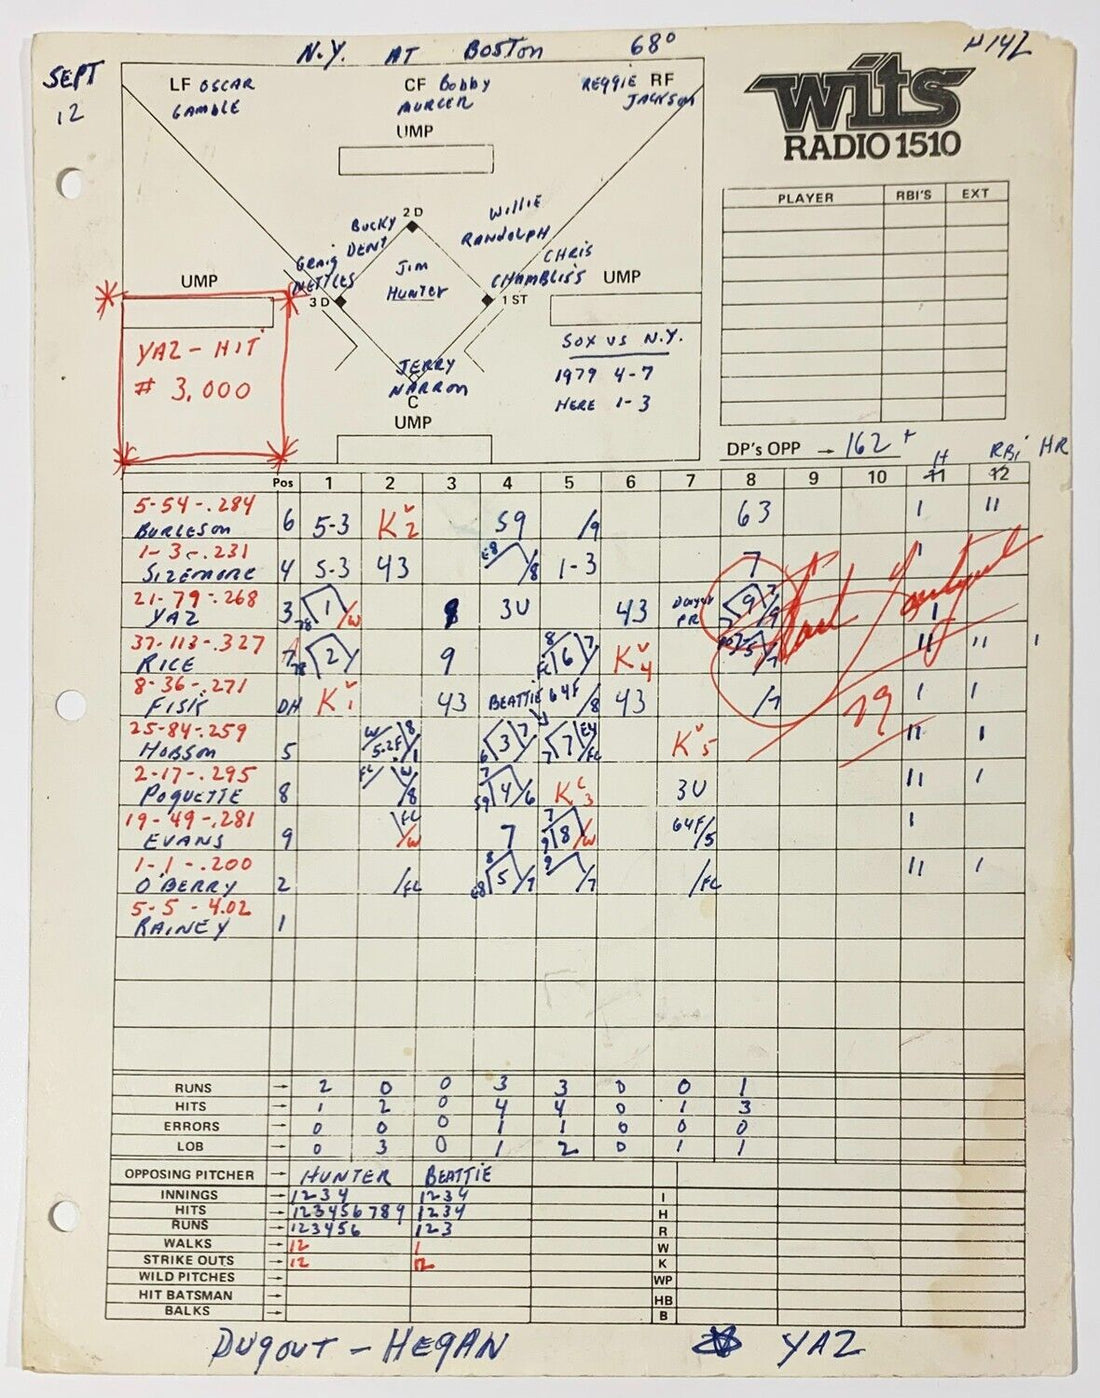 N.Y. AT BOSTON 68°
#142
SEPT
12
LF OSCAR
GAMBLE
CF BOBBY
MURCER
REGGIE RF
JACKSON
UMP
wits
RADIO 1510
PLAYER RBI'S EXT
2 D
BUCKY
DENT
WILLIE
RANDOLPH
GRAIG
NETTLES
JIM
HUNTER
CHRIS
CHAMBLISS
UMP
UMP
3 D
1 ST
YAZ - HIT
# 3,000
SOX VS N.Y.
1979 4-7
HERE 1-3
JERRY
NARRON
C
UMP
DP's OPP → 162 +
H RBI HR
Pos 1 2 3 4 5 6 7 8 9 10 11 12
5-54-.284
BURLESON 6 5-3 K2 59 /9 63 I II
1-3-.231
SIZEMORE 4 5-3 43 E8 /8 1-3 7 I
21-79-.268
YAZ 3 78 1 /W 8 3U 43 DWYER PR 9 /9 I
37-113-.327
RICE 7 78 2 9 8 FC 6 7 K4 /7 II II I
8-36-.271
FISK DH K1 43 BEATTIE 64F /8 43 /7 I I
25-84-.259
HOBSON 5 W 5-2F 8 /1 6 3 7 7 7 E4 /FC K5 II I
2-17-.295
POQUETTE 8 FC W /8 7 59 4 /6 K3 3U II I
19-49-.281
EVANS 9 FC /W 7 7 9 8 /W 64F /5 I
1-1-.200
O'BERRY 2 /FC 8 E8 5 /7 9 /7 /FC II I
5-5-4.02
RAINEY 1
Carl Yastrzemski
79
RUNS → 2 0 0 3 3 0 0 1
HITS → 1 2 0 4 4 0 1 3
ERRORS → 0 0 0 1 1 0 0 0
LOB → 0 3 0 1 2 0 1 1
OPPOSING PITCHER → HUNTER BEATTIE
INNINGS → 1234 1234 I
HITS → 123456789 1234 H
RUNS → 123456 123 R
WALKS → 12 1 W
STRIKE OUTS → 12 12 K
WILD PITCHES → WP
HIT BATSMAN → HB
BALKS → B
DUGOUT - HEGAN YAZ